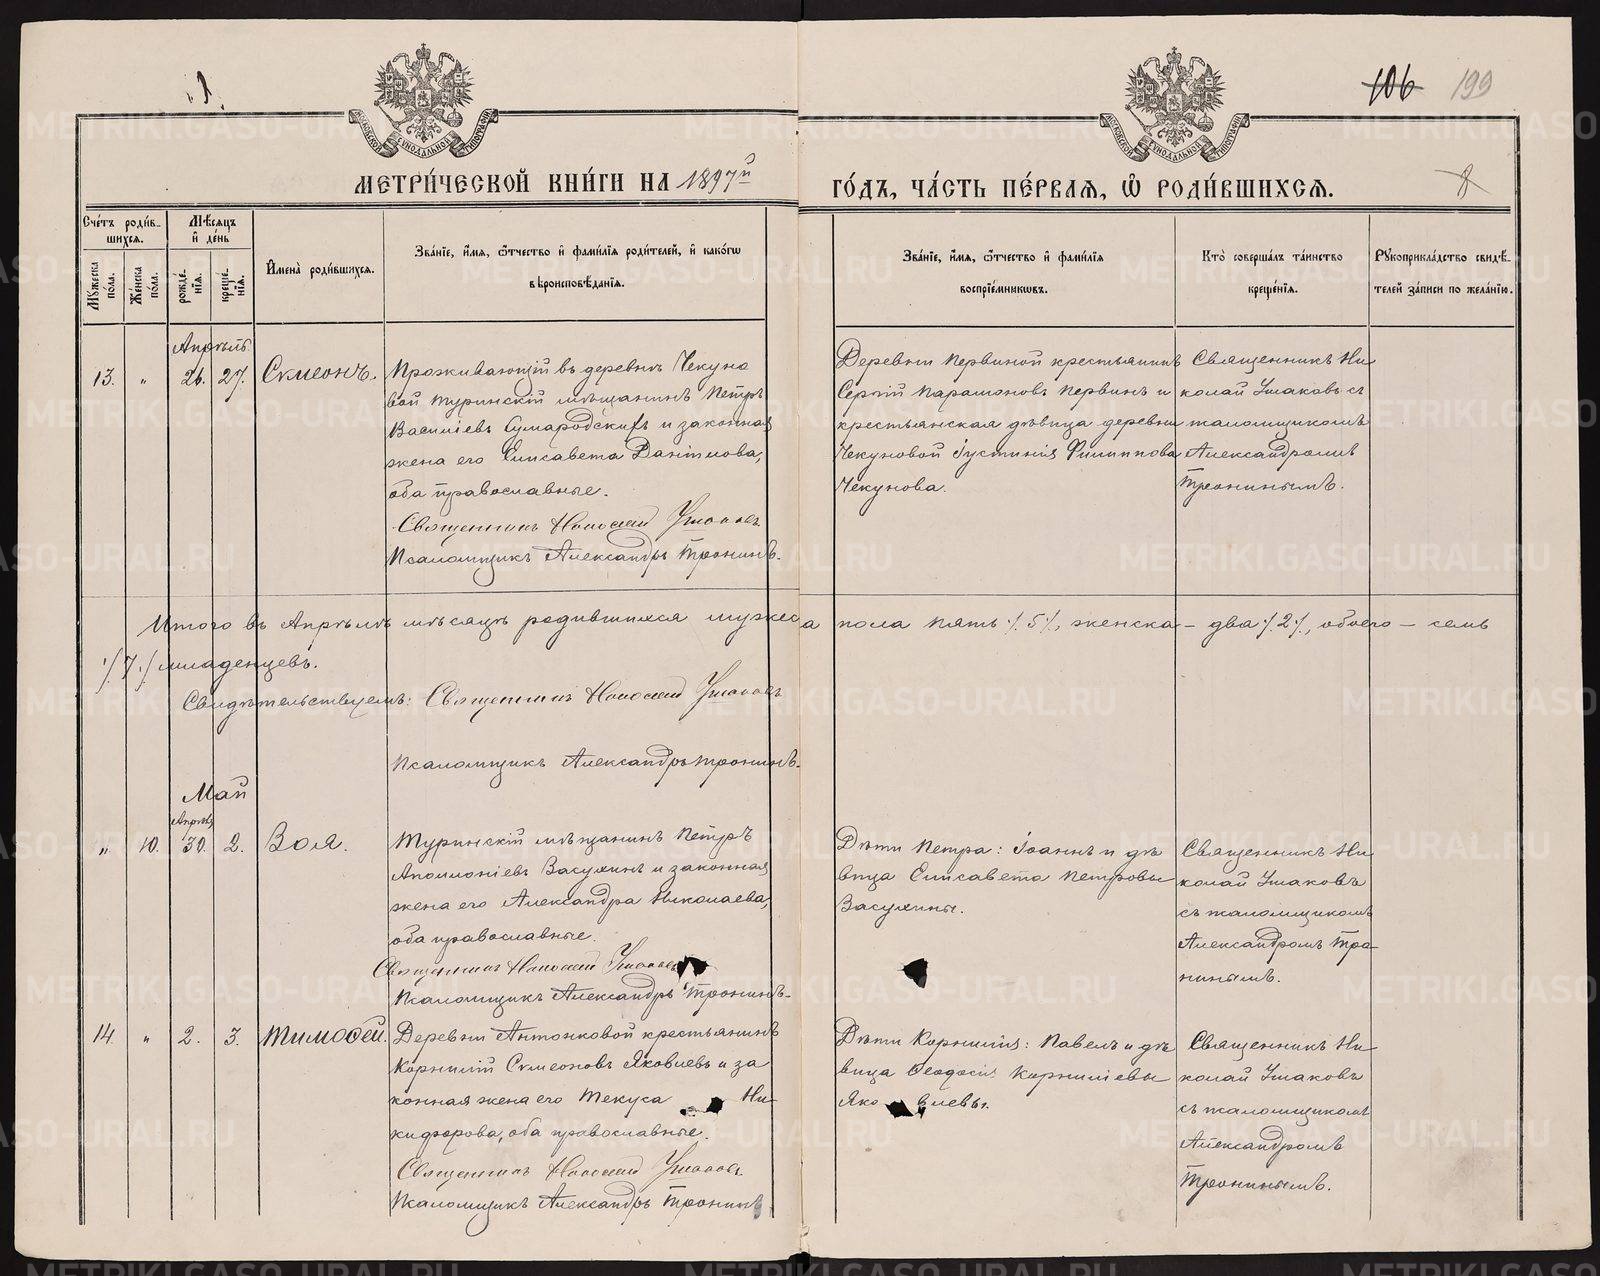 1.
МОСКОВСКОЙ СУНОДАЛЬНОЙ ТИПОГРАФІИ
МОСКОВСКОЙ СУНОДАЛЬНОЙ ТИПОГРАФІИ
106 199
МЕТРИ́ЧЕСКОЙ КНИ́ГИ НА 1897й ГО́ДЪ, ЧА́СТЬ ПЕ́РВАЯ, Ѡ҆ РОДИ́ВШИХСЯ.
8
Сче́тъ роди́в-
шихся.
Мѣсяцъ
и҆ де́нь
Мꙋжеска по́ла.
Же́нска по́ла.
рожде́-
нїя.
креще́-
нїя.
И҆мена̀ роди́вшихся.
Зва́нїе, и҆́мя, ѻ҆́тчество и҆ фами́лїя роди́телей, и҆ како́гѡ
вѣроисповѣ́данїя.
Зва́нїе, и҆́мя, ѻ҆́тчество и҆ фами́лїя
воспрїе́мникѡвъ.
Кто̀ соверша́лъ та́инство
креще́нїя.
Рꙋкоприкла́дство свидѣ́-
телей за́писи по жела́нїю.
Апрѣль
13. „ 26. 27. Сѵмеонъ.
Проживающій въ деревнѣ Чекуно
вой туринскій мѣщанинъ Петръ
Василіевъ Сумародскихъ и законная
жена его Елисавета Даніилова,
оба православные.
Священникъ Николай Ушаковъ
Псаломщикъ Александръ Тронинъ.
Деревни Первиной крестьянинъ
Сергій Парамоновъ Первинъ и
крестьянская дѣвица деревни
Чекуновой Іустинія Филиппова
Чекунова.
Священникъ Ни
колай Ушаковъ съ
псаломщикомъ
Александромъ
Тронинымъ.
Итого въ Апрѣлѣ мѣсяцѣ родившихся мужеска пола пять /.5/., женска – два /.2/., обоего – семь
/.7./ младенцевъ.
Свидѣтельствуемъ: Священникъ Николай Ушаковъ
Псаломщикъ Александръ Тронинъ.
Май
Апрѣля
„ 10. 30. 2. Зоя.
Туринскій мѣщанинъ Петръ
Аполлоніевъ Васухинъ и законная
жена его Александра Николаева,
оба православные.
Священникъ Николай Ушаковъ
Псаломщикъ Александръ Тронинъ.
Дѣти Петра: Іоаннъ и дѣ
вица Елисавета Петровы
Васухины.
Священникъ Ни
колай Ушаковъ
съ псаломщикомъ
Александромъ Тро-
нинымъ.
14. „ 2. 3. Тимоѳей.
Деревни Антонковой крестьянинъ
Корнилій Сѵмеоновъ Яковлевъ и за
конная жена его Текуса Ни-
кифорова, оба православные.
Священникъ Николай Ушаковъ
Псаломщикъ Александръ Тронинъ
Дѣти Корнилія: Павелъ и дѣ
вица Ѳеодосія Корниліевы
Яковлевы.
Священникъ Ни
колай Ушаковъ
съ псаломщикомъ
Александромъ
Тронинымъ.
METRIKI.GASO-URAL.RU